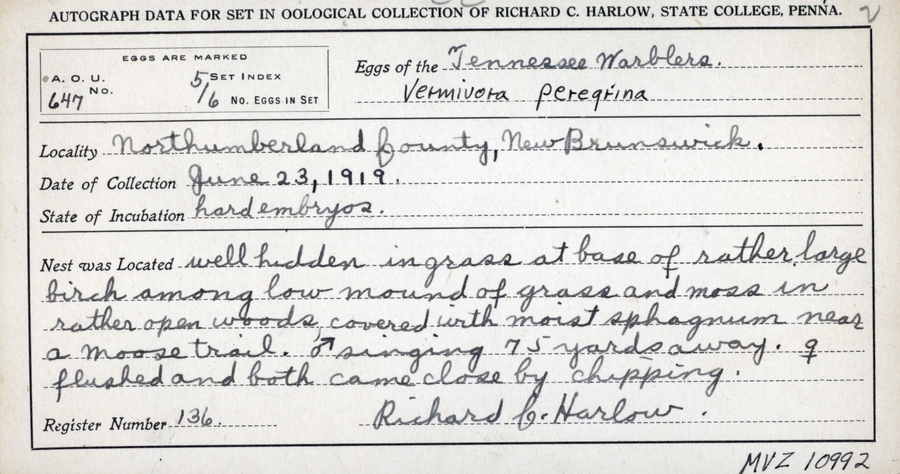 AUTOGRAPH DATA FOR SET IN OOLOGICAL COLLECTION OF RICHARD C. HARLOW, STATE COLLEGE, PENNA. 2
EGGS ARE MARKED
A. O. U. No. 647
5/6 SET INDEX NO. EGGS IN SET
Eggs of the Tennessee Warblers.
Vermivora peregrina
Locality Northumberland County, New Brunswick.
Date of Collection June 23, 1919.
State of Incubation hard embryos.
Nest was Located well hidden in grass at base of rather large
birch among low mound of grass and moss in
rather open woods, covered with moist sphagnum near
a moose trail. ♂ singing 75 yards away. ♀
flushed and both came close by chipping.
Register Number 136.
Richard C. Harlow.
MVZ 10992